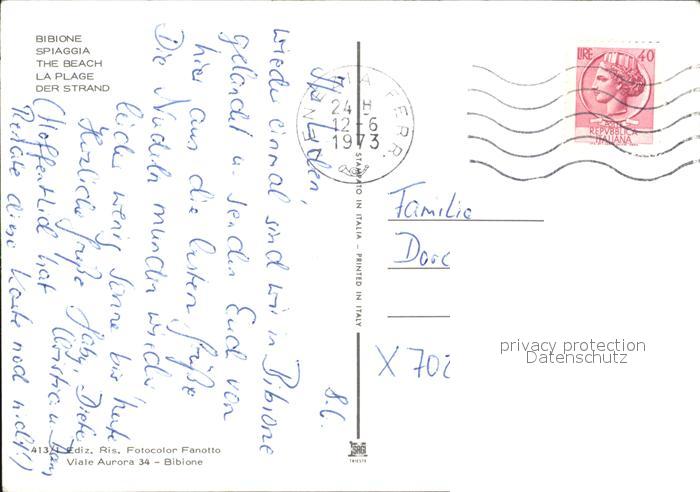 BIBIONE
SPIAGGIA
THE BEACH
LA PLAGE
DER STRAND
8.6.
Ihr Lieben,
wieder einmal sind wir in Bibione
gelandet u. senden Euch von
hier aus die besten Grüße
Die Nudeln munden wieder
leider wenig Sonne bis heute
Herzliche Grüße Gaby, Dieter
Christa u.
(Hoffentlich hat
Renate diese Karte noch nicht!)
413/ Ediz. Ris. Fotocolor Fanotto
Viale Aurora 34 - Bibione
VENEZIA FERR.
24 H
12-6
1973
STAMPATO IN ITALIA - PRINTED IN ITALY
TRIESTE
LIRE 40
REPVBBLICA
ITALIANA
Familie
X 702
privacy protection
Datenschutz